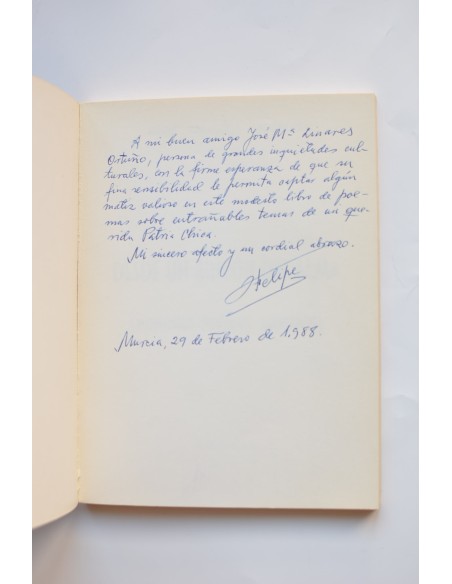 A mi buen amigo José Mª Linares
Ortuño, persona de grandes inquietudes cul-
turales, con la firme esperanza de que su
fina sensibilidad le permita captar algún
matiz valioso en este modesto libro de poe-
mas sobre entrañables temas de mi que-
rida Patria Chica.
Mi sincero afecto y un cordial abrazo.
Felipe
Murcia, 29 de Febrero de 1.988.